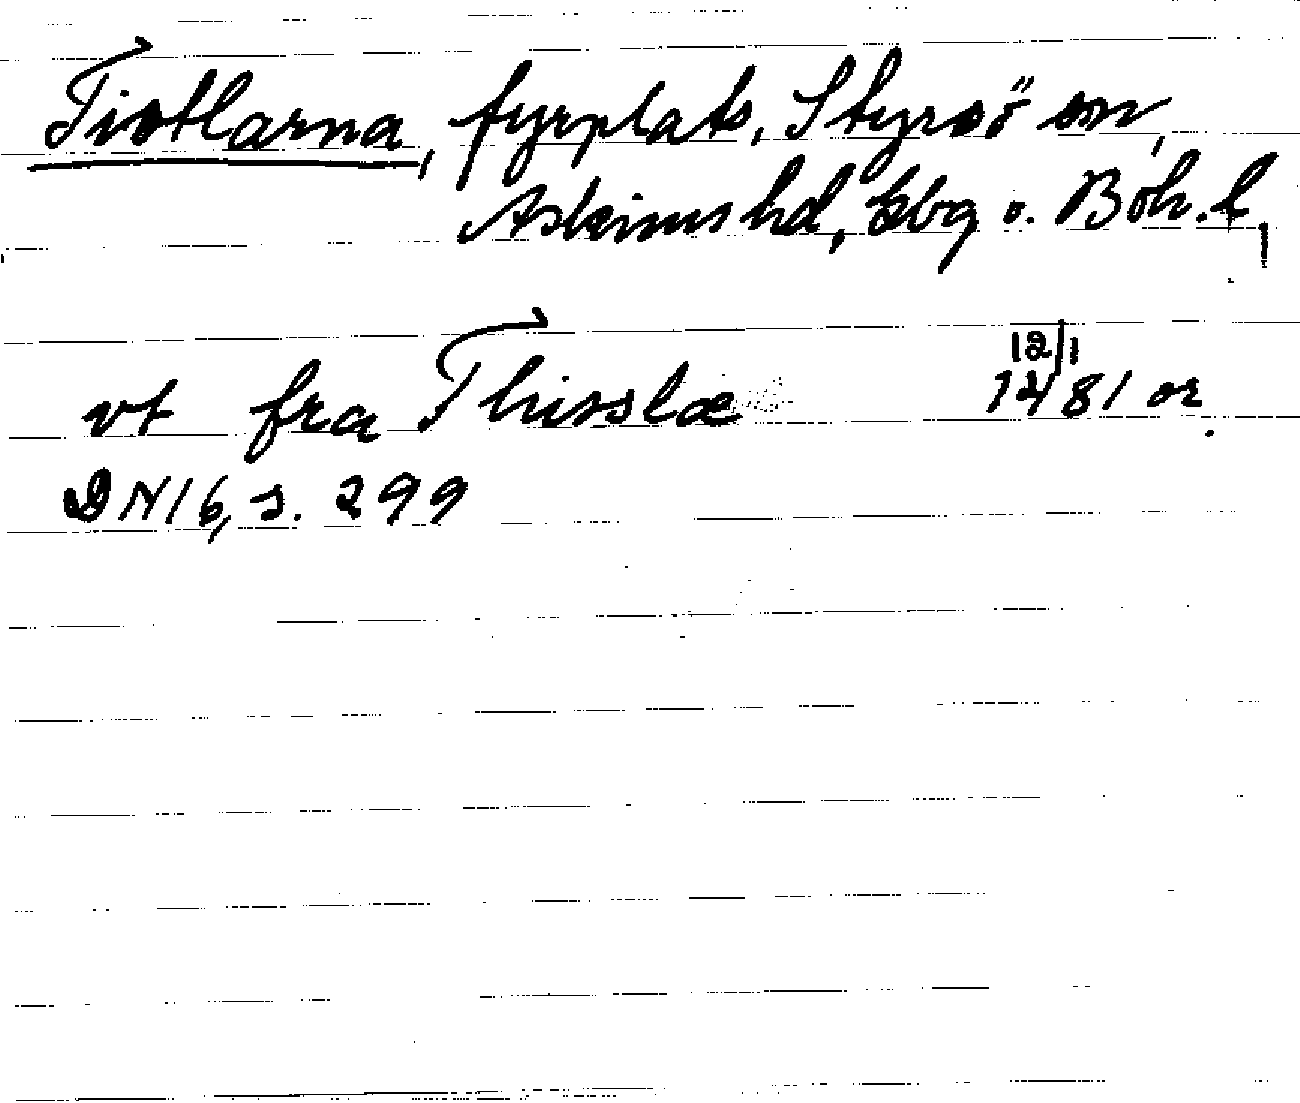 Tistlarna, fyrplats, Styrsö sn,
Askims hd, Gbg o. Boh. l.
vt fra Thisslæ 12/1 1481 or.
DN 16, s. 299